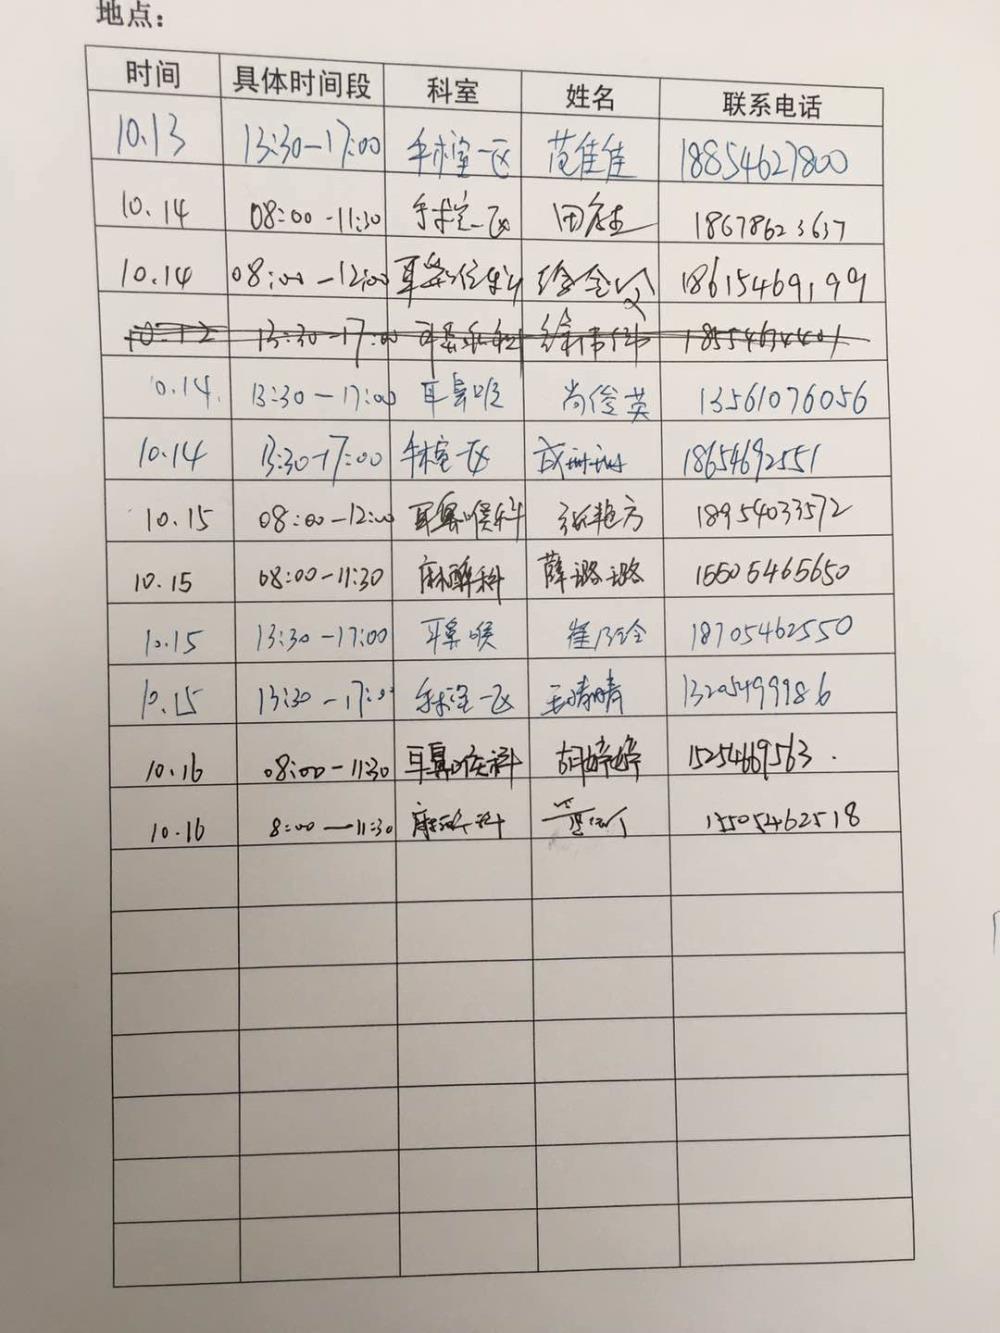 地点：
时间 具体时间段 科室 姓名 联系电话
10.13 13:30-17:00 手术室一区 范佳佳 18854627800
10.14 08:00-11:30 手术室一区 田 18678623637
10.14 08:00-12:00 耳鼻咽喉科 徐金 18615469199
10.12 13:30-17:00 耳鼻喉科 徐伟伟
10.14 13:30-17:00 耳鼻喉 尚俊英 13561076056
10.14 13:30-17:00 手术室一区 成珊珊 18654692551
10.15 08:00-12:00 耳鼻喉科 张艳方 18954033572
10.15 08:00-11:30 麻醉科 薛璐璐 15505465650
10.15 13:30-17:00 耳鼻喉 崔乃玲 18705462550
10.15 13:30-17:00 手术室一区 王晴晴 13205499986
10.16 08:00-11:30 耳鼻喉科 胡婷婷 15254669563.
10.16 8:00-11:30 麻醉科 15505462518